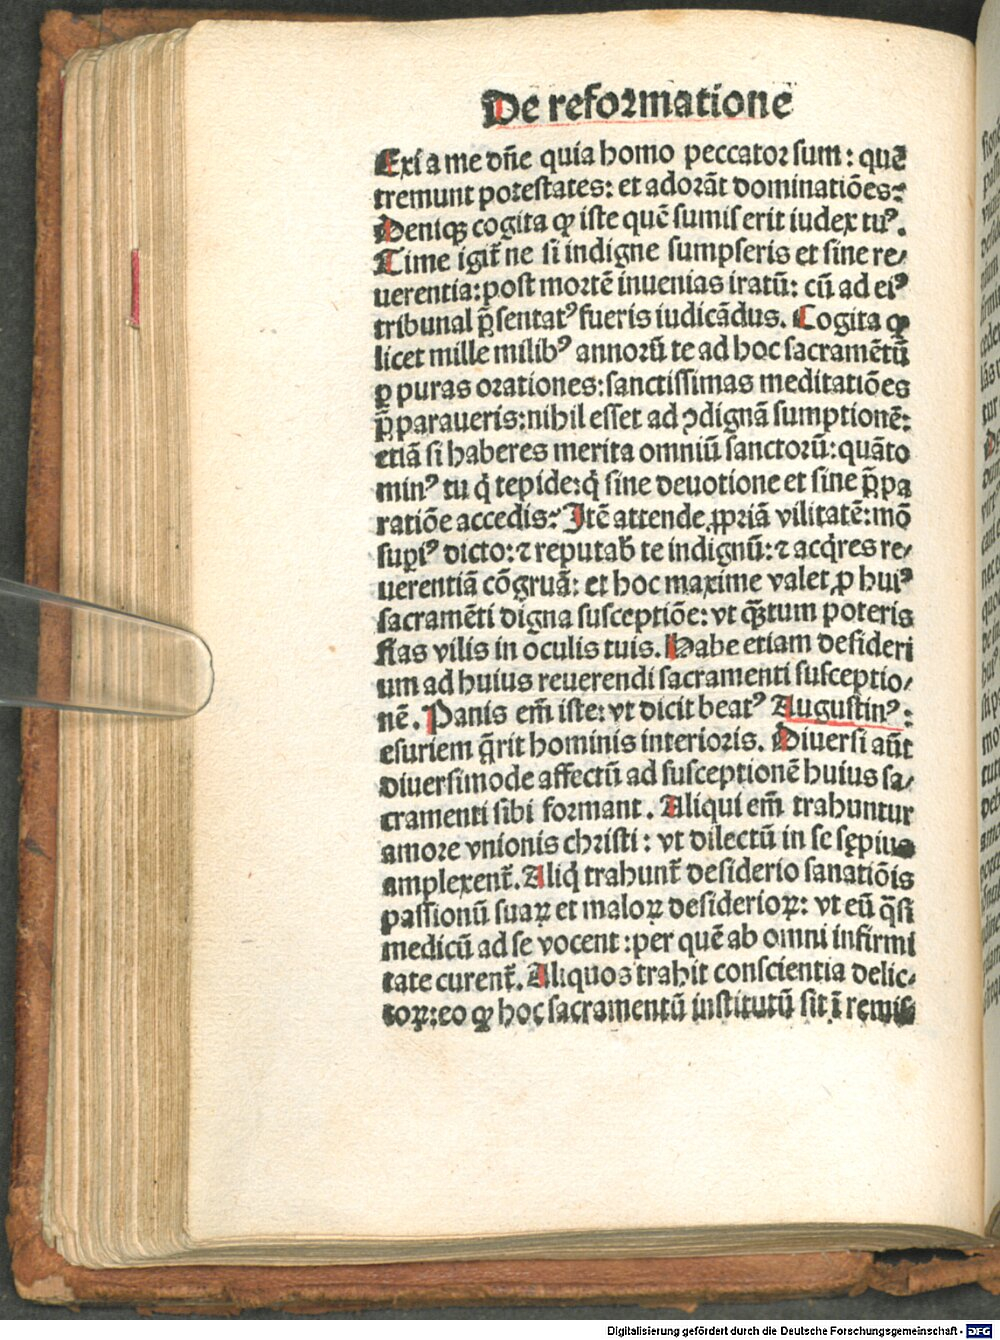 De reformatione
Exi a me dn̄e quia homo peccator sum: quē
tremunt potestates: et adorāt dominatiōes:
Deniqꝫ cogita ꝙ iste quē sumis erit iudex tuꝰ.
Time igit̄ ne si indigne sumpseris et sine re-
uerentia: post mortē inuenias iratū: cū ad eiꝰ
tribunal p̄sentatꝰ fueris iudicādus. Cogita ꝙ
licet mille milibꝰ annorū te ad hoc sacramētū
ꝑ puras orationes: sanctissimas meditatiōes
p̄paraueris: nihil esset ad ꝯdignā sumptionē:
etiā si haberes merita omniū sanctorū: quāto
minꝰ tu q̇ tepide: q̇ sine deuotione et sine p̄pa
ratiōe accedis: Itē attende ꝓpriā vilitatē: mō
supiꝰ dicto: ⁊ reputab̄ te indignū: ⁊ acq̇res re-
uerentiā cōgruā: et hoc maxime valet ꝓ huiꝰ
sacramēti digna susceptiōe: vt qꝫtum poteris
fias vilis in oculis tuis. Habe etiam desideri
um ad huius reuerendi sacramenti susceptio-
nē. Panis em̄ iste: vt dicit beatꝰ Augustinꝰ:
esuriem q̄rit hominis interioris. Diuersi aūt
diuersimode affectū ad susceptionē huius sa-
cramenti sibi formant. Aliqui em̄ trahuntur
amore vnionis christi: vt dilectū in se sępius
amplexent̄. Aliq̇ trahunt̄ desiderio sanatiōis
passionū suaꝝ et maloꝝ desiderioꝝ: vt eū q̄si
medicū ad se vocent: per quē ab omni infirmi
tate curent̄. Aliquos trahit conscientia delic-
toꝝ: eo ꝙ hoc sacramentū institutū sit ī remis
Digitalisierung gefördert durch die Deutsche Forschungsgemeinschaft - DFG